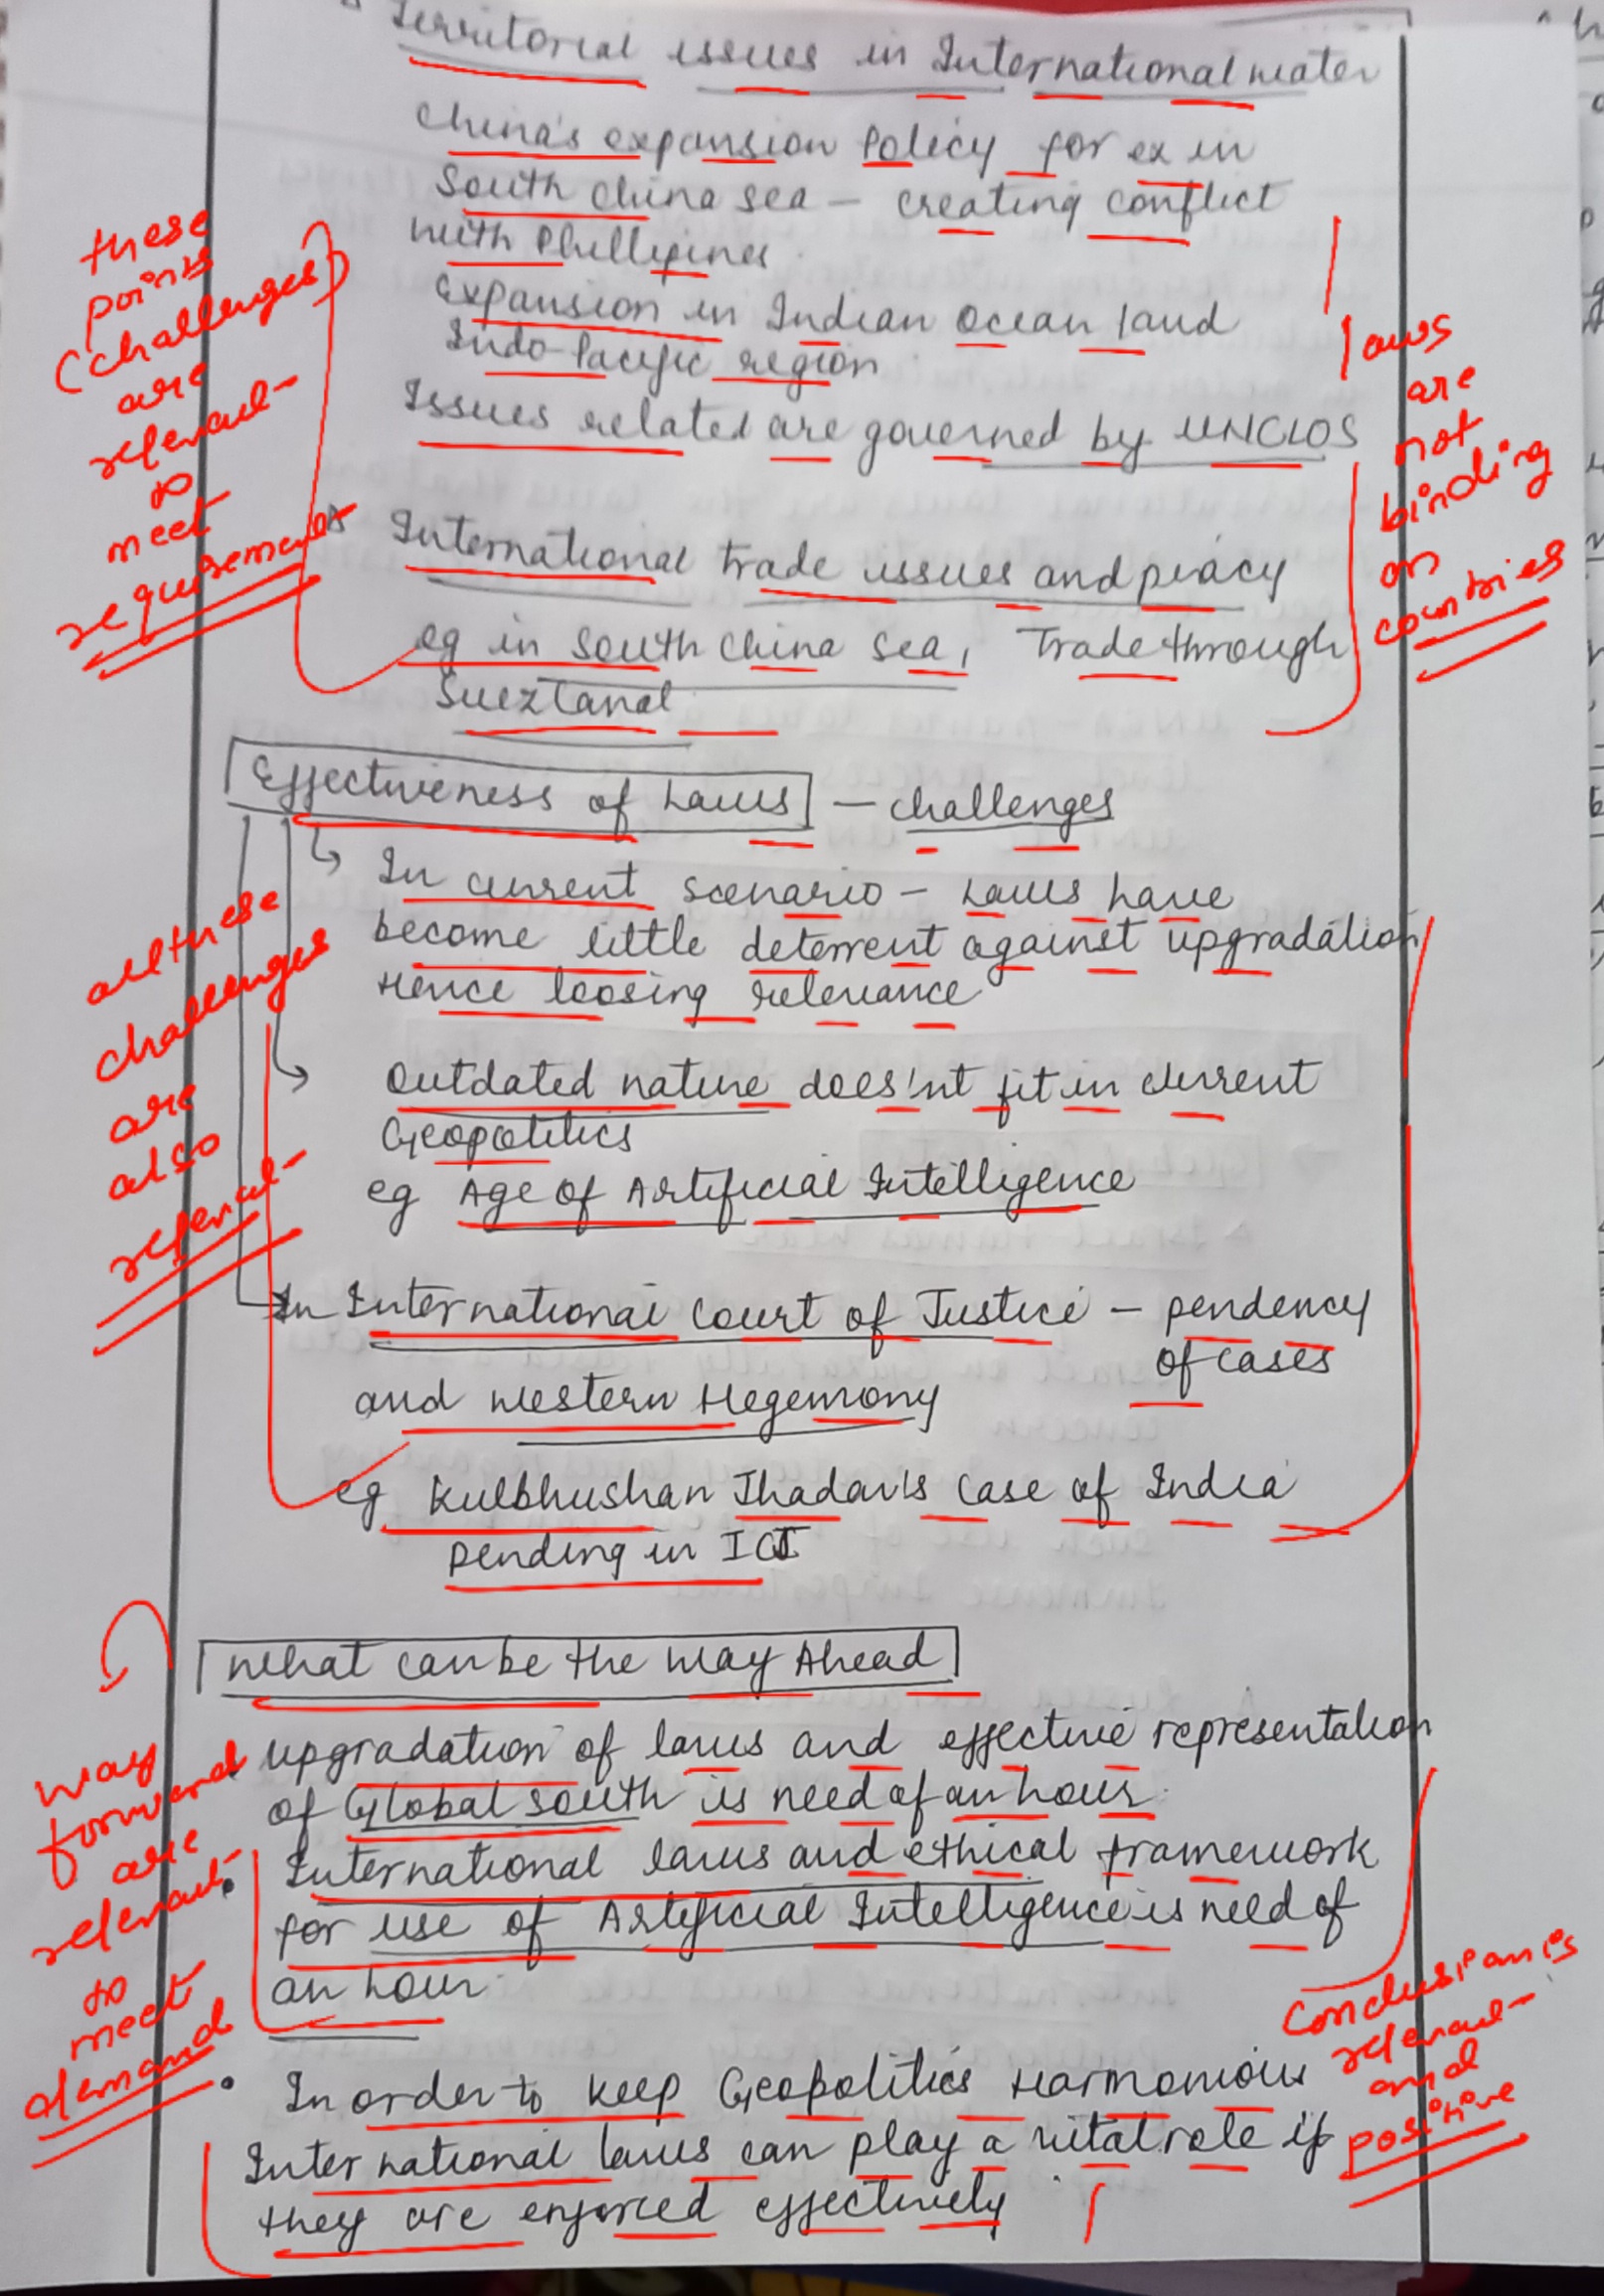 Territorial issues in International water
China's expansion Policy for ex in
South China sea – creating conflict
with Phillipines
Expansion in Indian Ocean land
Indo-Pacific region
Issues related are governed by UNCLOS
these
points
(challenges)
are
relevant
to
meet
requirement
laws
are
not
binding
on
countries
International trade issues and piracy
eg in South China Sea, Trade through
Suez Canal
Effectiveness of Laws – challenges
In current scenario – Laws have
become little deterrent against upgradation
Hence loosing relevance
Outdated nature does'nt fit in current
Geopolitics
eg Age of Artificial Intelligence
all these
challenges
are
also
relevant
In International Court of Justice – pendency
of cases
and Western Hegemony
eg Kulbhushan Jhadav's Case of India
pending in ICJ
What can be the Way Ahead
upgradation of laws and effective representation
of Global South is need of an hour.
International laws and ethical framework
for use of Artificial Intelligence is need of
an hour.
way
forward
are
relevant
to
meet
demand
• In order to keep Geopolitics Harmonious
International laws can play a vital role if
they are enforced effectively
Conclusion is
relevant
and
positive